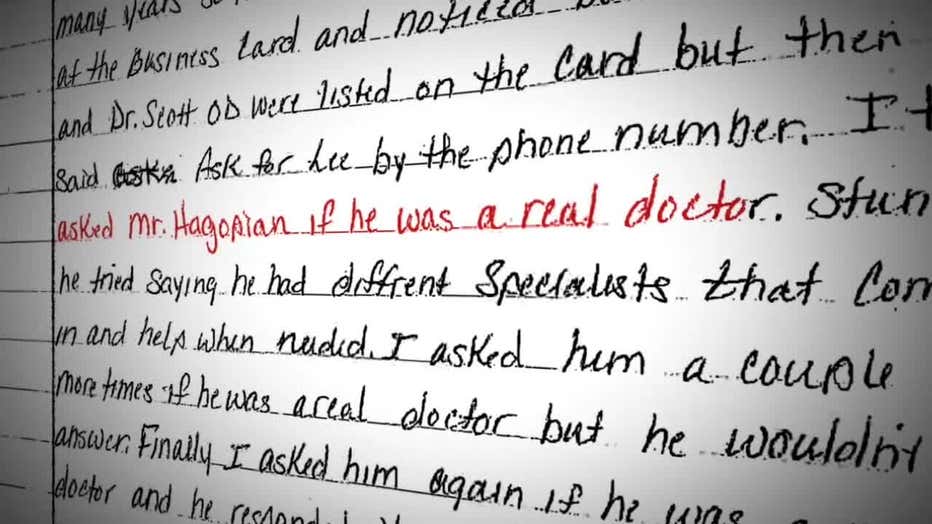 many years
at the Business Card and noticed
and Dr. Scott OD were listed on the card but then
said Ask for Lee by the phone number. I
asked Mr. Hagopian if he was a real doctor. Stun
he tried saying he had diffrent Specialists that Com
in and help when neded. I asked him a couple
more times if he was a real doctor but he wouldn't
answer. Finally I asked him again if he was
doctor and he